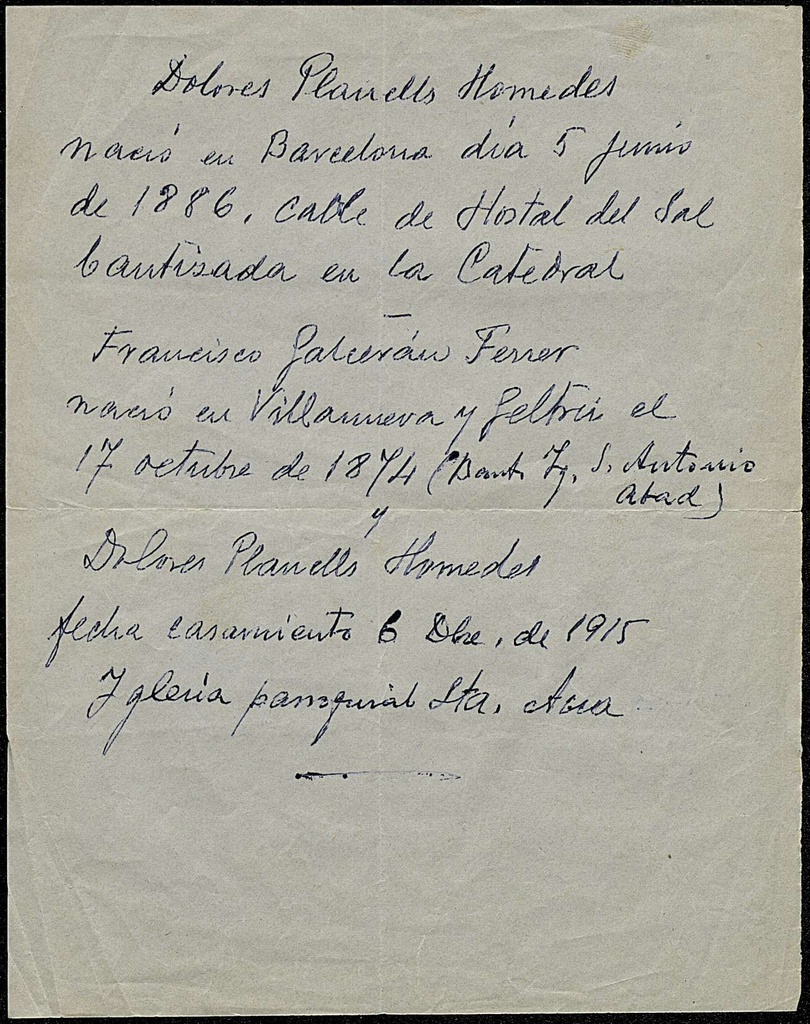 Dolores Planells Homedes
nació en Barcelona día 5 junio
de 1886, calle de Hostal del Sol
bautisada en la Catedral
—
Francisco Galcerán Ferrer
nació en Villanueva y Geltrú el
17 octubre de 1874 (Baut. Yg. S. Antonio
Abad)
y
Dolores Planells Homedes
fecha casamiento 6 Dbe. de 1915
Yglesia parroquial Sta. Ana